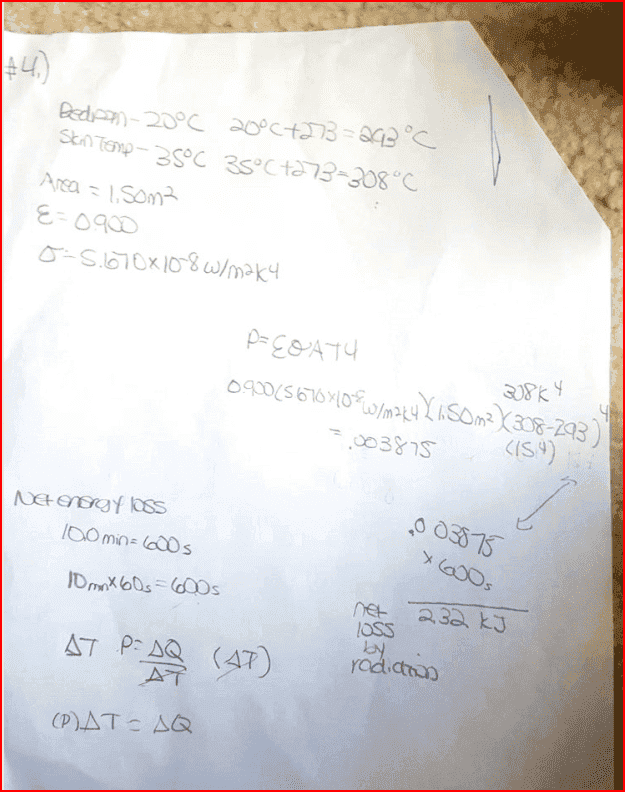 #4.)
Bedroom - 20°C 20°C+273=293°C
Skin Temp - 35°C 35°C+273=308°C
Area = 1.50m²
ε = 0.900
σ = 5.670×10-8 W/m2K4
P=εσAT4
308K⁴
0.900(5.670×10-8 W/m2K4)(1.50m²)(308-293)⁴
= .003875 (15⁴)
Net energy loss
10.0min=600s
10min×60s=600s
.003875
×600s
232 KJ
net loss by radiation
ΔT P=ΔQ/ΔT (ΔT)
(P)ΔT = ΔQ